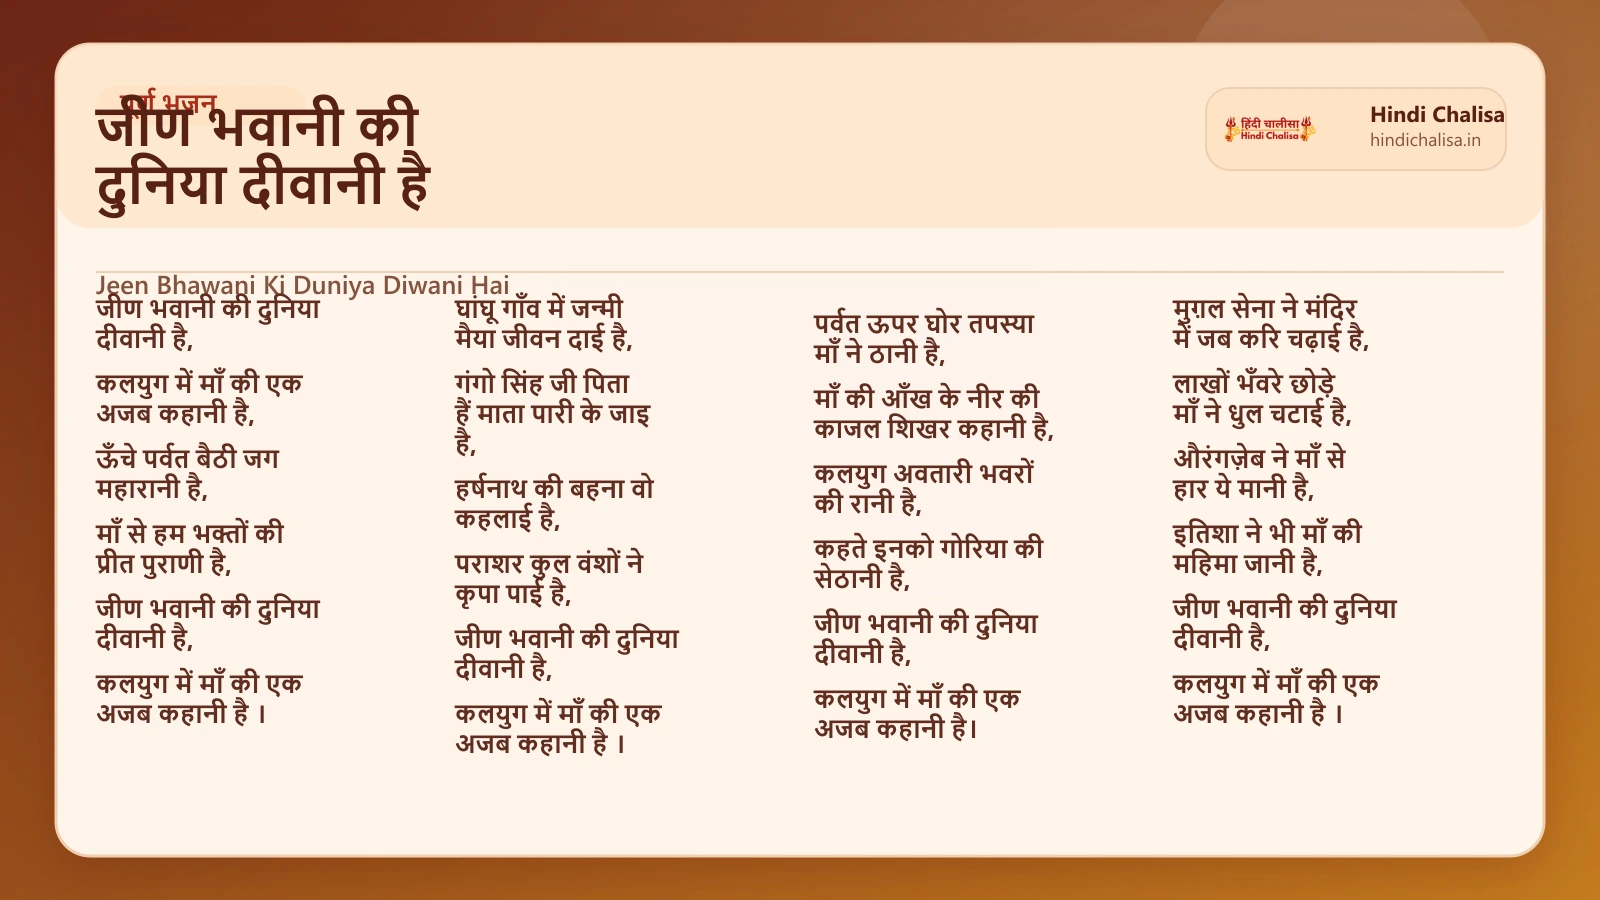 पूर्ण भजन
जीण भवानी की
दुनिया दीवानी है
हिंदी चालीसा
Hindi Chalisa
Hindi Chalisa
hindichalisa.in
Jeen Bhawani Ki Duniya Diwani Hai
जीण भवानी की दुनिया
दीवानी है,
कलयुग में माँ की एक
अजब कहानी है,
ऊँचे पर्वत बैठी जग
महारानी है,
माँ से हम भक्तों की
प्रीत पुराणी है,
जीण भवानी की दुनिया
दीवानी है,
कलयुग में माँ की एक
अजब कहानी है ।
घांघू गाँव में जन्मी
मैया जीवन दाई है,
गंगो सिंह जी पिता
हैं माता पारी के जाइ
है,
हर्षनाथ की बहना वो
कहलाई है,
पराशर कुल वंशों ने
कृपा पाई है,
जीण भवानी की दुनिया
दीवानी है,
कलयुग में माँ की एक
अजब कहानी है ।
पर्वत ऊपर घोर तपस्या
माँ ने ठानी है,
माँ की आँख के नीर की
काजल शिखर कहानी है,
कलयुग अवतारी भवरों
की रानी है,
कहते इनको गोरिया की
सेठानी है,
जीण भवानी की दुनिया
दीवानी है,
कलयुग में माँ की एक
अजब कहानी है।
मुग़ल सेना ने मंदिर
में जब करि चढ़ाई है,
लाखों भँवरे छोड़े
माँ ने धुल चटाई है,
औरंगज़ेब ने माँ से
हार ये मानी है,
इतिशा ने भी माँ की
महिमा जानी है,
जीण भवानी की दुनिया
दीवानी है,
कलयुग में माँ की एक
अजब कहानी है ।